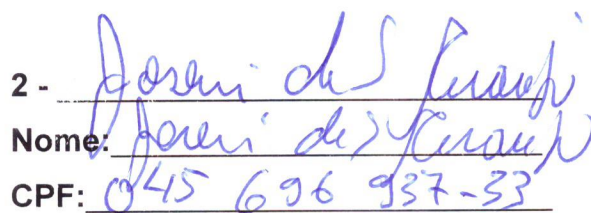 2 - Joseni de S Araujo
Nome: Joseni de S Araujo
CPF: 045 696 937-33